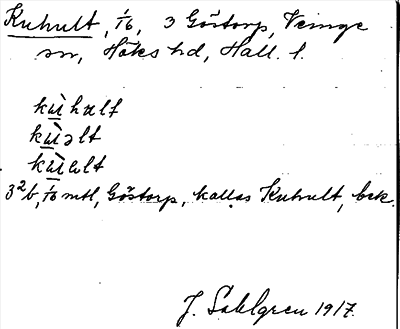 Kuhult, 1/6, 3 Göstorp, Veinge
sn, Höks hd, Hall. l.
kùhult
kùəlt
kùult
3²b, 1/6 mtl, Göstorp, kallas Kuhult, bek.
J. Sahlgren 1917.